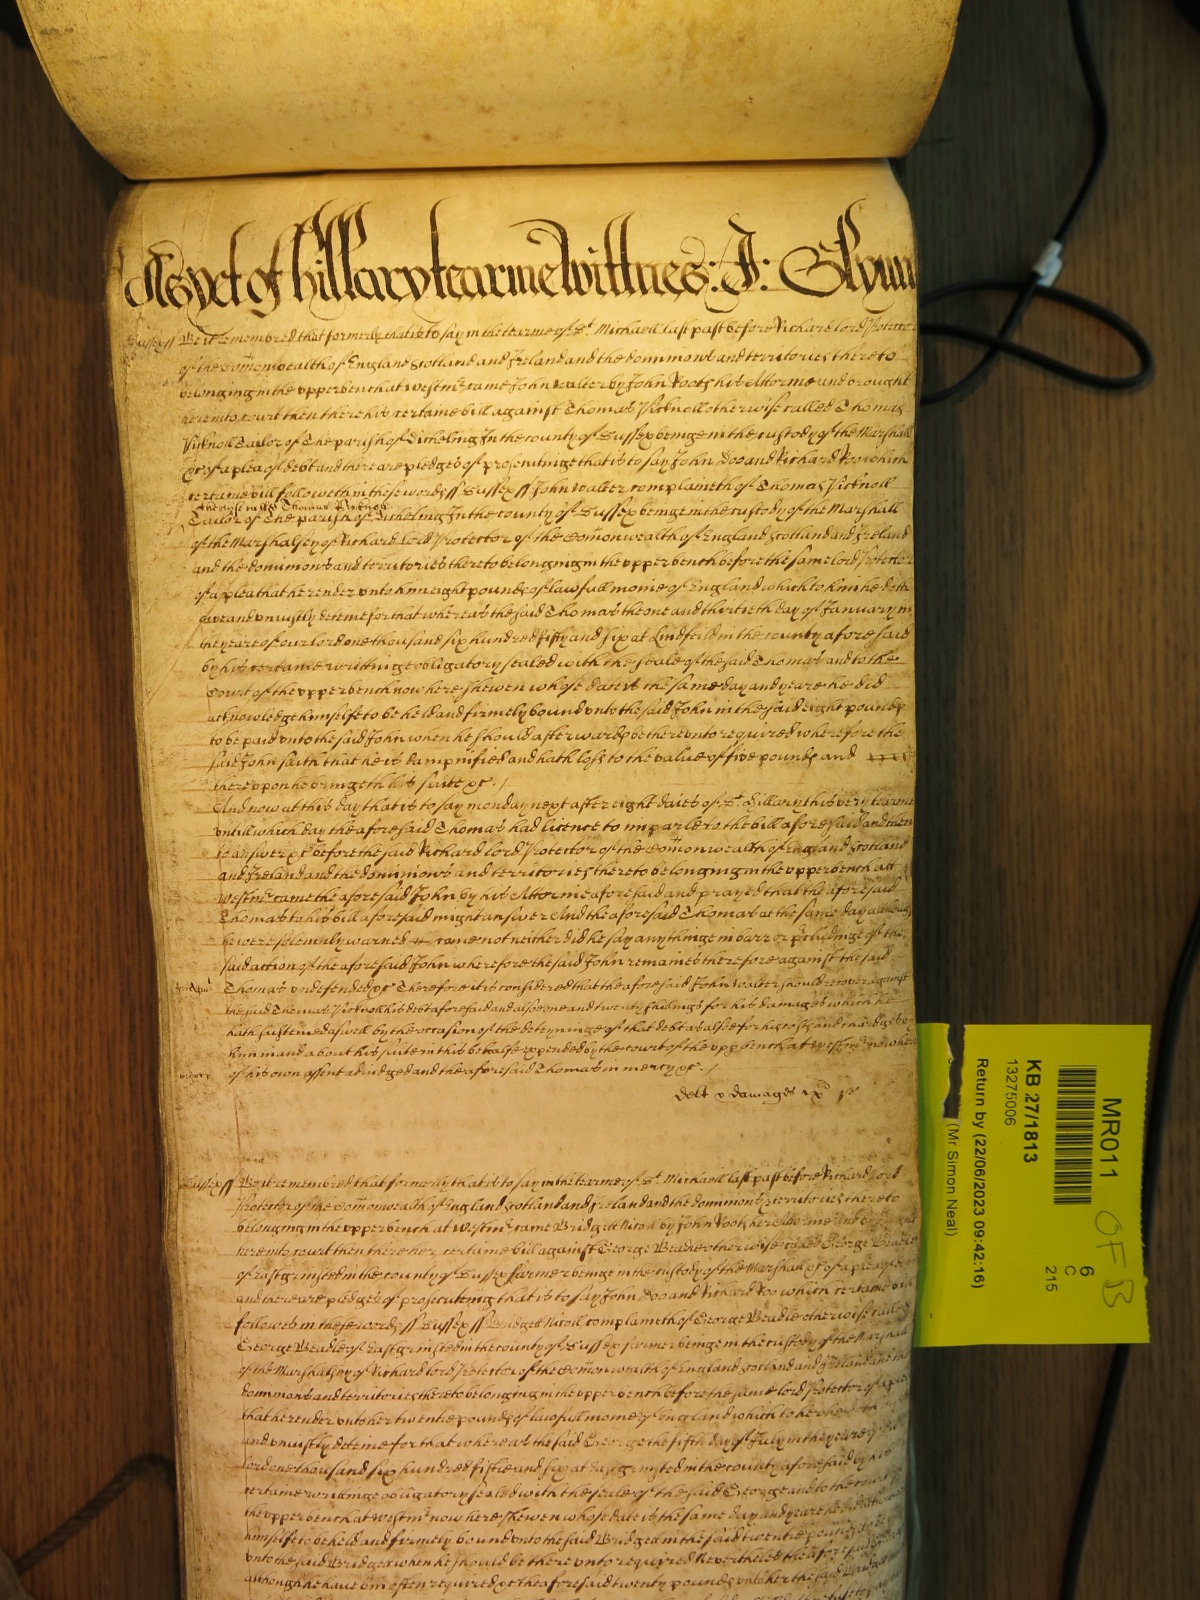 As yet of hillary tearme Wittnes: J: Glynn
Sussex ss Be it remembred that formerly that is to say in the tearme of St. Michaell last past before Richard lord Protector
of the Comonwealth of England Scotland and Ireland and the dominions and territories thereto
belonging in the upper bench at Westmr. came John Walter by John Roots his Attornie and brought
here into court then there his certaine bill against Thomas Picknoll otherwise called Thomas
Picknoll Tailor of The parish of Dicheling In the county of Sussex beinge in the custody of the Marshall
&c of a plea of debt and there are pledges of prosecutinge that is to say John Doo and Richard Roo which
certaine bill followeth in these words ss Sussex ss John Walter complaineth of Thomas Picknoll
otherwise called Thomas Picknoll
Tailor of The parish of Dicheling In the county of Sussex beinge in the custody of the Marshall
of the Marshalsey of Richard Lord Protector of the Comonwealth of England Scotland and Ireland
and the dominions and territories thereto belonging in the upper bench before the same lord Protector
of a plea that he render unto him eight pounds of lawfull monie of England which to him he doth
owe and uniustly deteine for that whereas the said Thomas the one and thirtieth day of January in
the yeare of our lord one thousand six hundred fifty and six at Lindfeild in the county aforesaid
by his certaine writtinge obligatory sealed with the seale of the said Thomas and to the
Court of the upper bench now here shewen whose date is the same day and yeare he did
acknowledge himselfe to be held and firmely bound unto the said John in the said eight pounds
to be paid unto the said John when he should afterwards be thereunto required wherefore the
said John saith that he is dampnified and hath loss to the value of five pounds and
thereupon he bringeth his suite &c. /
And now at this day that is to say monday next after eight daies of St. Hillary this very tearme
untill which day the aforesaid Thomas had licence to imparle to the bill aforesaid and then
to answer &c before the said Richard lord Protector of the Comonwealth of England Scotland
and Ireland and the dominions and territories thereto belonging in the upper bench att
Westmr. came the aforesaid John by his Attornie aforesaid and prayed that the aforesaid
Thomas to his bill aforesaid might answer And the aforesaid Thomas at the same day although
he were solemnly warned came not neither did he say any thinge in barr or p'cludinge of the
said action of the aforesaid John wherefore the said John remaines therefore against the said
Thomas undefended &c Therefore it is considered that the aforesaid John Walter should recover against
the said Thomas Picknoll his debt aforesaid and alsoe one and twenty shillings for his damages which he
hath susteined aswell by the occasion of the deteyninge of that debt as alsoe for his costs and chardges by
him in and about his suite in this behalfe expended by the court of the upp bench at Westmr. now here
mercy of his own assent adiudged and the aforesaid Thomas in mercy &c. /
debt & damages ix li js
Sussex ss Be it remembred that formerly that is to say in the tearme of St. Michaell last past before Richard lord
Protector of the Comonwealth of England Scotland and Ireland and the dominions & territories thereto
belonging in the upper bench at Westmr. came Bridgett Nicoll by John Roots her Attornie and
here into court then there her certaine bill against George Beadle otherwise called George Beadle
of Eastgrinsted in the county of Sussex farmer beinge in the custody of the Marshall &c of a plea
and there are pledges of prosecuteing that is to say John Doo and Richard Roo which certaine bill
followes in these words ss Sussex ss Bridgett Nicoll complaineth of George Beadle otherwise called
George Beadle of Eastgrinsted in the county of Sussex farmer being in the custody of the Marshall
of the Marshalsey of Richard lord Protector of the Comonwealth of England Scotland and Ireland and the
dominions and territories thereto belonging in the upper bench before the same lord Protector of a plea
that he render unto her twentie pounds of lawfull monie of England which to her he doth
and uniustly deteine for that whereas the said George the fifth day of July in the yeare of
lord one thousand six hundred fiftie and six at Eastgrinsted in the county aforesaid by his
certaine writtinge obligatory sealed with the seale of the said George and to the court
the upper bench at Westmr. now here shewen whose date is the same day and yeare he
himselfe to be held and firmely bound unto the said Bridgett in the said twentie pounds
unto the said Bridgett when he should be there unto required Neverthelesse the aforesaid
although he have bin often required &c the aforesaid twenty pounds unto her the said
MR011
KB 27/1813
13275006
Return by (22/06/2023 09:42:16)
(Mr Simon Neal)
6
C
215
OFB